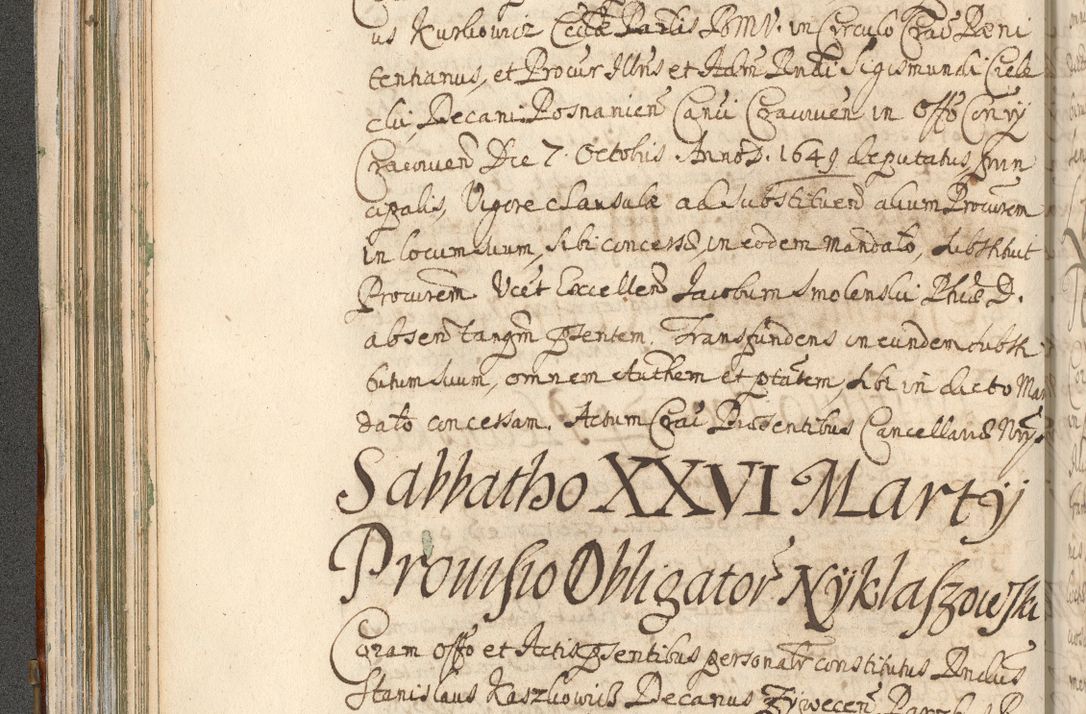 us Kurkowicz Ecclae Parlis BMV. in Circulo Crac Pæni
tentianus, et Procur Illris et Adm Rndi Sigismundi Ciele
cki, Decani Posnanien Canci Cracovien in Offo Con
Cracovien Die 7. Octobris Anno D. 1649 deputatus, prin
cipalis, Vigore clausulæ ad substituend alium Procurem
in locum suum, sibi concessæ, in eodem mandato, substituit
Procurem. Vcet Excellen Jacobum Smolenski Phiæ D.
absen tanqm psentem. Transfundens in eundem substi
tutum suum, omnem Authem et ptatem, sibi in dicto Man
dato concessam. Actum Crac Præsentibus Cancellariæ
Sabbatho XXVI Martÿ
Prouisio Obligator Nÿklaszowski
Coram offo et Actis psentibus personalr constitutus Rndus
Stanislaus Kaszkowicz Decanus Zÿwecen